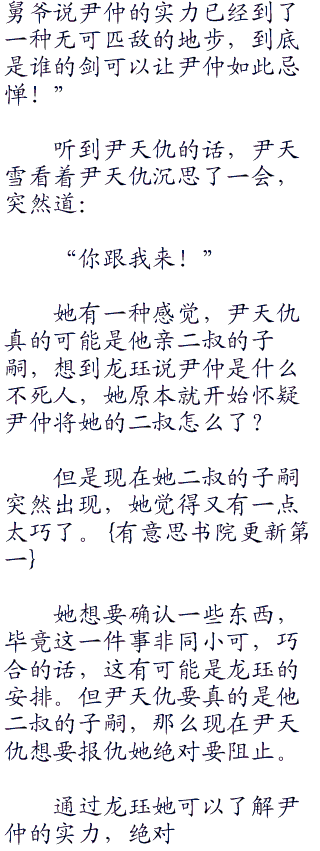 舅爷说尹仲的实力已经到了
一种无可匹敌的地步，到底
是谁的剑可以让尹仲如此忌
惮！”
听到尹天仇的话，尹天
雪看着尹天仇沉思了一会，
突然道：
“你跟我来！”
她有一种感觉，尹天仇
真的可能是他亲二叔的子
嗣，想到龙珏说尹仲是什么
不死人，她原本就开始怀疑
尹仲将她的二叔怎么了？
但是现在她二叔的子嗣
突然出现，她觉得又有一点
太巧了。{有意思书院更新第
一}
她想要确认一些东西，
毕竟这一件事非同小可，巧
合的话，这有可能是龙珏的
安排。但尹天仇要真的是他
二叔的子嗣，那么现在尹天
仇想要报仇她绝对要阻止。
通过龙珏她可以了解尹
仲的实力，绝对